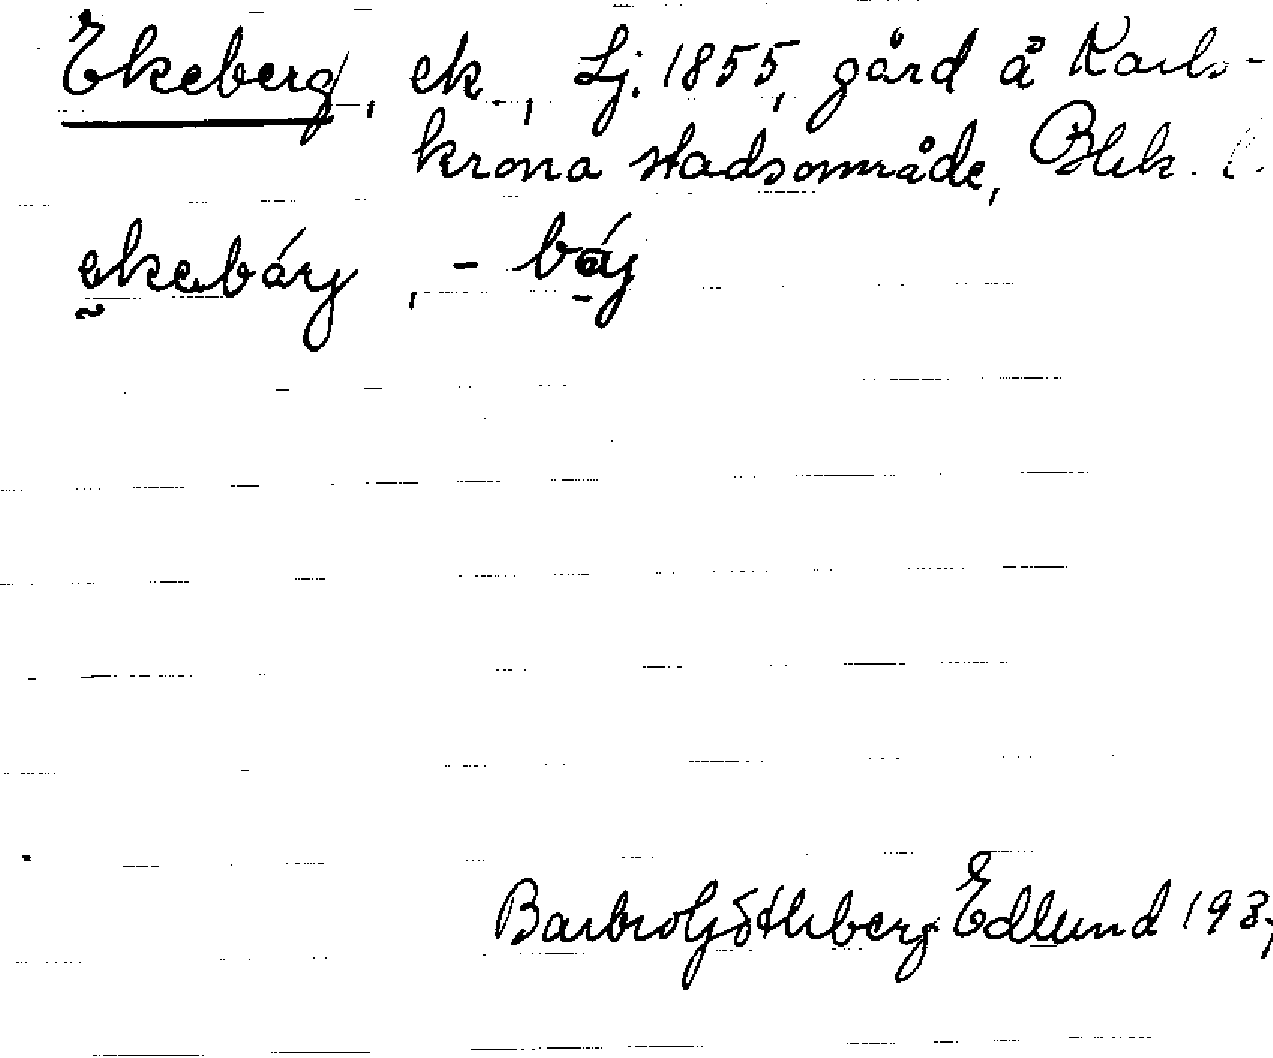 Ekeberg, ek., Lj. 1855, gård å Karls-
krona stadsområde, Blek. l.
ekebárj, - báj
Barbro Göthberg-Edlund 193